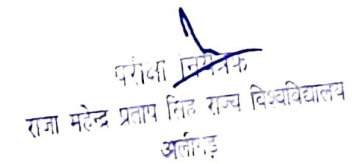 परीक्षा नियंत्रक
राजा महेन्द्र प्रताप सिंह राज्य विश्वविद्यालय
अलीगढ़